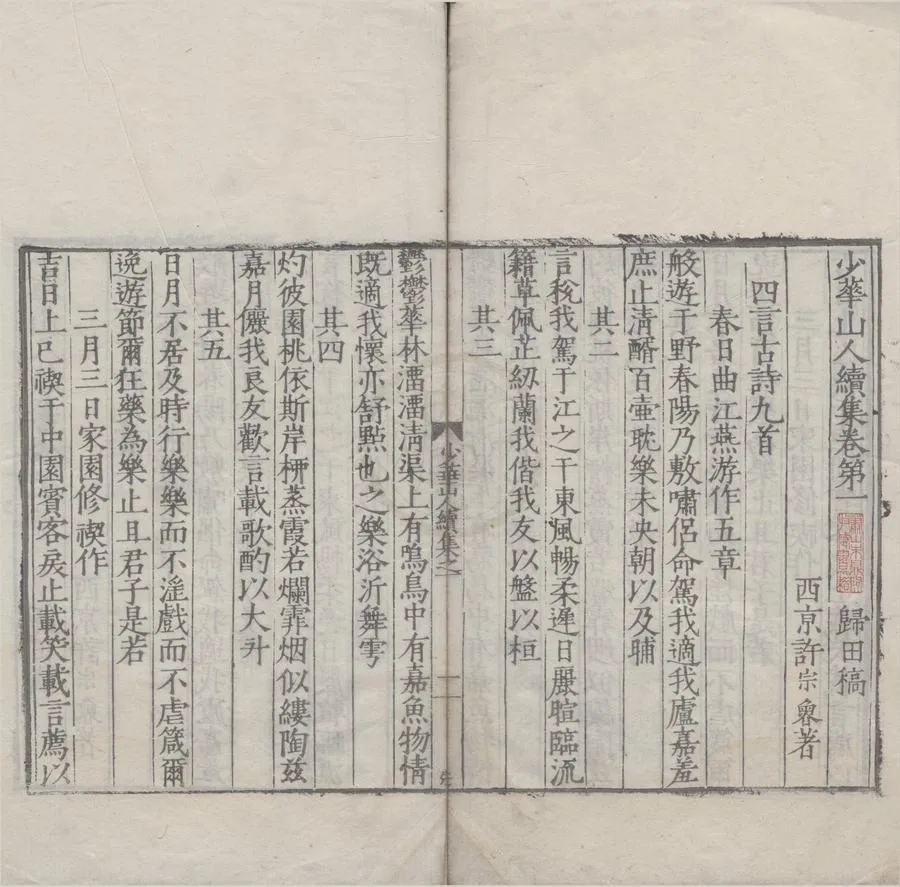 少華山人續集卷第一 歸田稿
西亰許宗魯著
四言古詩九首
春日曲江燕游作五章
般遊于野春陽乃敷嘯侣命駕我適我廬嘉羞
庶止清醑百壷耽樂未央朝以及晡
其二
言稅我駕于江之干東風暢柔遲日麗暄臨流
籍草佩芷紉蘭我偕我友以盤以桓
其三
鬱鬱華林濡濡清渠上有鳴鳥中有嘉魚物情
既適我懷亦舒㸃也之樂浴沂舞雩
其四
灼彼園桃依斯岸栁蒸霞若爛霏烟似縷陶兹
嘉月儷我良友歡言載歌酌以大斗
其五
日月不居及時行樂樂而不滛戲而不虐箴爾
逸遊節爾狂藥為樂止且君子是若
三月三日家園修禊作
吉日上巳禊于中園賓客戾止載笑載言薦以
少華山人續集之一
一